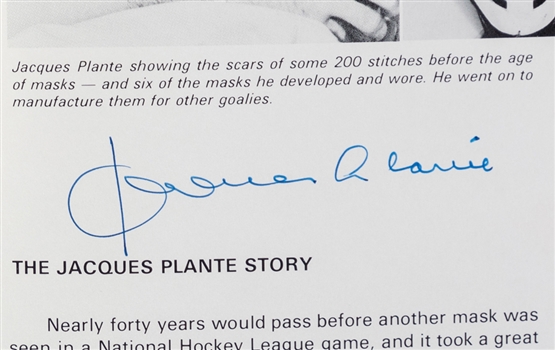 Jacques Plante showing the scars of some 200 stitches before the age
of masks — and six of the masks he developed and wore. He went on to
manufacture them for other goalies.
Jacques Plante
THE JACQUES PLANTE STORY
Nearly forty years would pass before another mask was
seen in a National Hockey League game, and it took a great